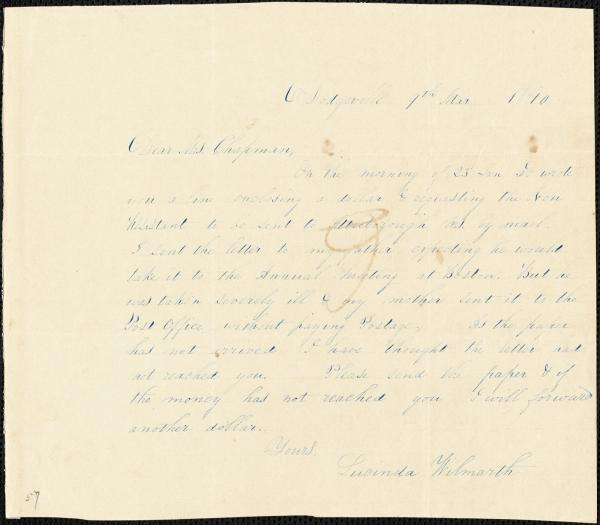 Dodgeville 9th Mar 1840
Dear Mrs. Chapman,
On the morning of 23 Jan I wrote
you a line enclosing a dollar & requesting the Non
Resistant to be sent to Attleborough Ms. by mail.
I sent the letter to my father expecting he would
take it to the Annual Meeting at Boston. But he
was taken severely ill & my mother sent it to the
Post Office without paying Postage. As the paper
has not arrived I have thought the letter had
not reached you. Please send the paper & if
the money has not reached you I will forward
another dollar.
Yours.
Lucinda Wilmarth
57